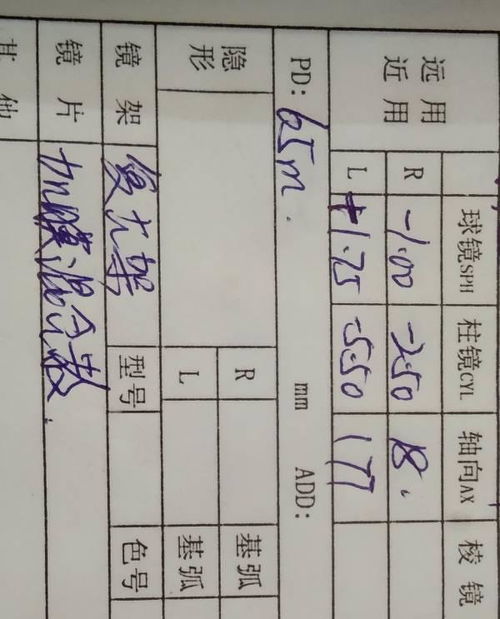 远用 近用 球镜SPH 柱镜CYL 轴向AX 棱镜
R -1.00 -2.50 18.
L +1.75 -5.50 177
PD: 65m. mm ADD:
隐形 R 基弧
L 基弧
镜架 复尤架 型号 色号
镜片 加膜混合散.
其他